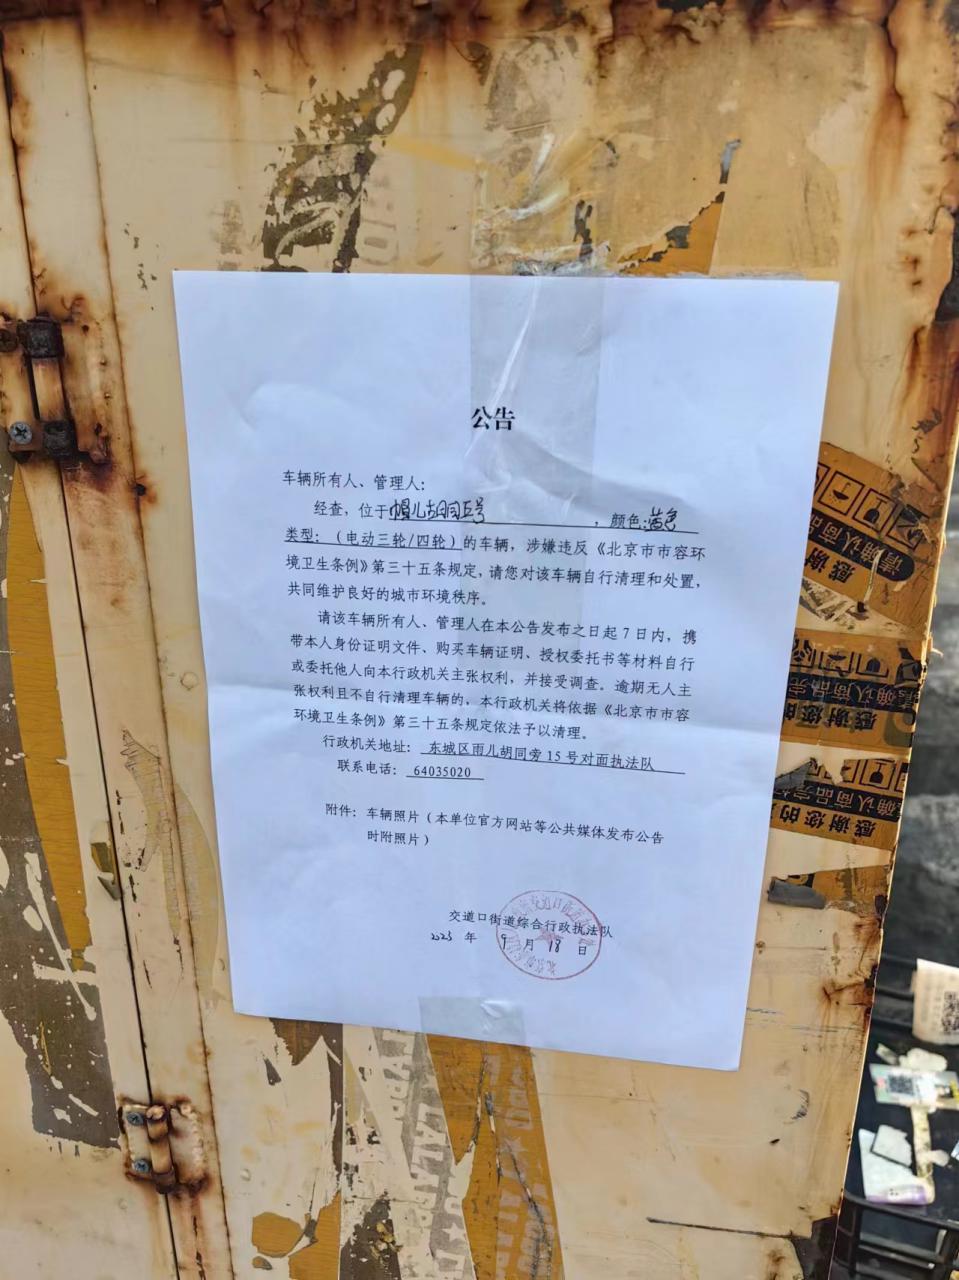 公告
车辆所有人、管理人：
经查，位于帽儿胡同5号，颜色：黄色
类型：（电动三轮/四轮）的车辆，涉嫌违反《北京市市容环
境卫生条例》第三十五条规定，请您对该车辆自行清理和处置，
共同维护良好的城市环境秩序。
请该车辆所有人、管理人在本公告发布之日起7日内，携
带本人身份证明文件、购买车辆证明、授权委托书等材料自行
或委托他人向本行政机关主张权利，并接受调查。逾期无人主
张权利且不自行清理车辆的，本行政机关将依据《北京市市容
环境卫生条例》第三十五条规定依法予以清理。
行政机关地址：东城区雨儿胡同旁15号对面执法队
联系电话：64035020
附件：车辆照片（本单位官方网站等公共媒体发布公告
时附照片）
交道口街道综合行政执法队
2025年9月18日
请确认商品
感谢
确认商品完
感谢您的
确认商品完
感谢您的